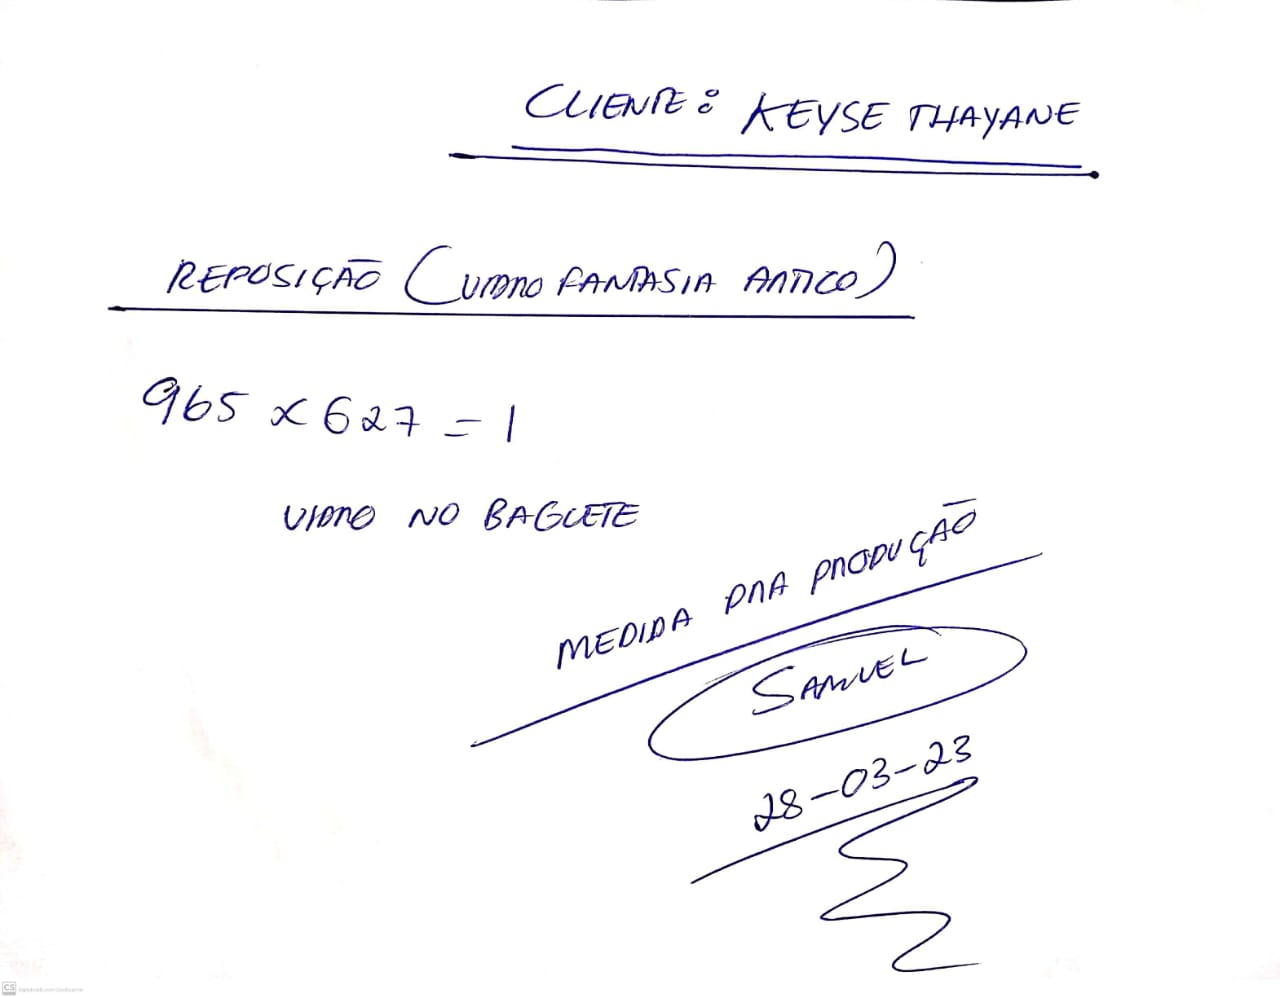 CLIENTE: KEYSE THAYANE
REPOSIÇÃO (VIDRO FANTASIA ÁRTICO)
965 x 627 = 1
VIDRO NO BAGUETE
MEDIDA PRA PRODUÇÃO
SAMUEL
28-03-23
CS